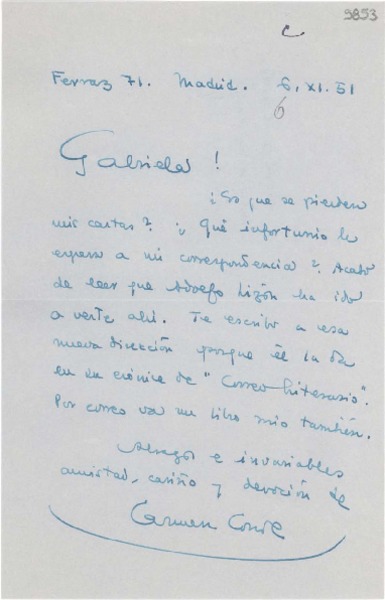 9853
c
Ferraz 71. Madrid. 6, XI. 51
6
Gabriela!
¿Es que se pierden
mis cartas? ¿Qué infortunio le
espera a mi correspondencia? Acabo
de leer que Adolfo Lizón ha ido
a verte ahí. Te escribo a esa
nueva dirección porque él la da
en su crónica de "Correo Literario".
Por correo va un libro mio también.
Abrazos e invariables
amistad, cariño y devoción de
Carmen Conde